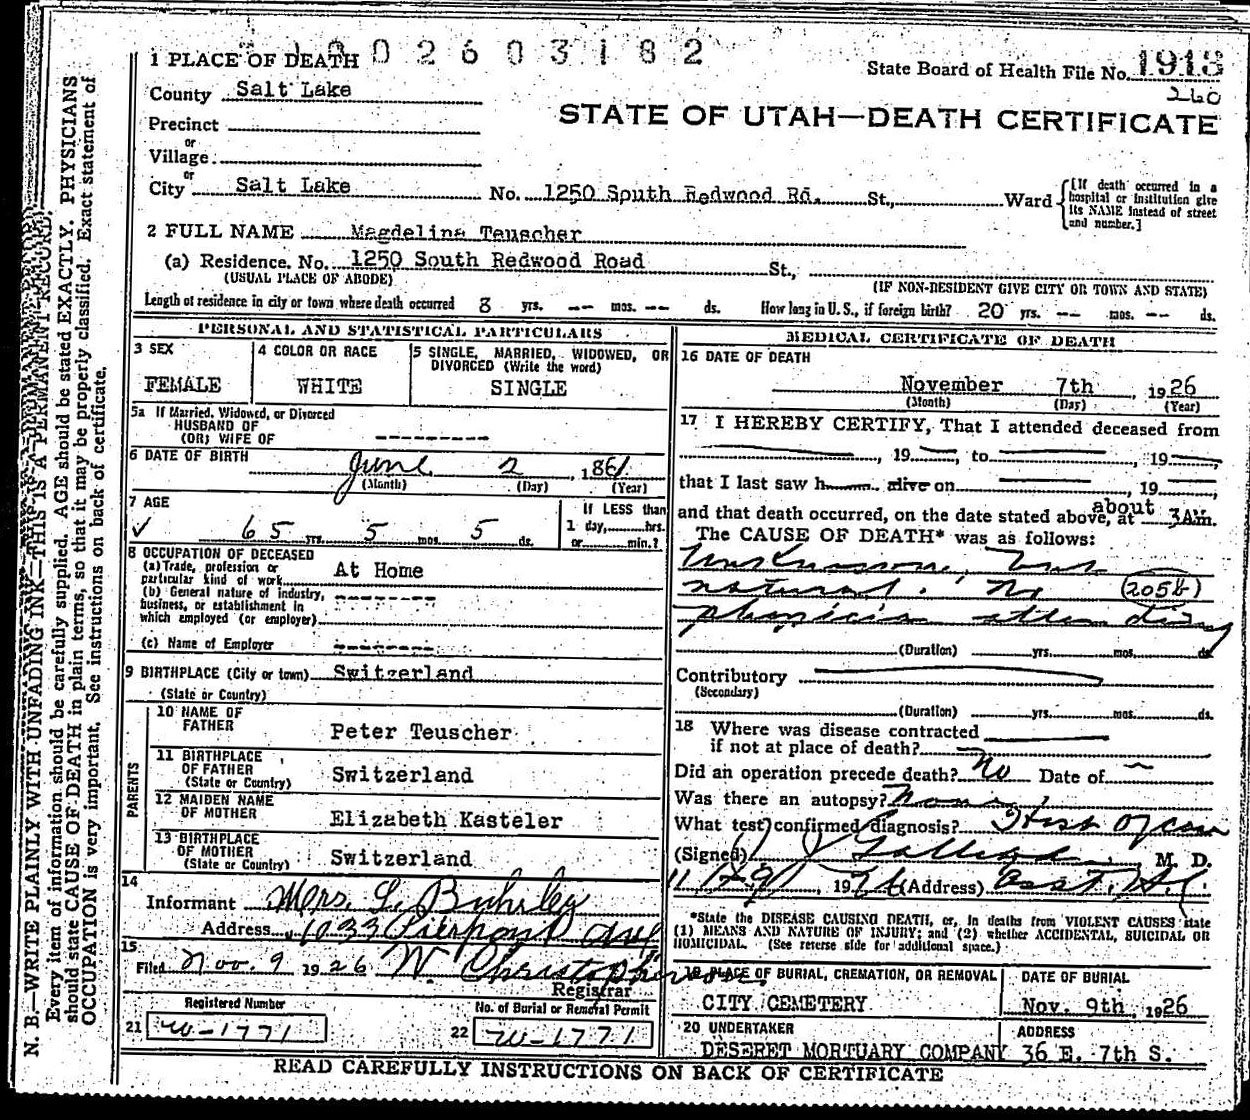 1002603182
1 PLACE OF DEATH
State Board of Health File No. 1913
260
County Salt Lake
STATE OF UTAH—DEATH CERTIFICATE
Precinct
or
Village
or
City Salt Lake No. 1250 South Redwood Rd. St., Ward
[If death occurred in a
hospital or institution give
its NAME instead of street
and number.]
2 FULL NAME Magdelina Teuscher
(a) Residence. No. 1250 South Redwood Road St.,
(USUAL PLACE OF ABODE) (IF NON-RESIDENT GIVE CITY OR TOWN AND STATE)
Length of residence in city or town where death occurred 8 yrs. -- mos. -- ds. How long in U. S., if foreign birth? 20 yrs. -- mos. -- ds.
PERSONAL AND STATISTICAL PARTICULARS
3 SEX
FEMALE
4 COLOR OR RACE
WHITE
5 SINGLE, MARRIED, WIDOWED, OR
DIVORCED (Write the word)
SINGLE
5a If Married, Widowed, or Divorced
HUSBAND OF
(OR) WIFE OF ----------
6 DATE OF BIRTH June 2, 1861
(Month) (Day) (Year)
7 AGE
✓ 65 yrs. 5 mos. 5 ds.
If LESS than
1 day, hrs.
or min.?
8 OCCUPATION OF DECEASED
(a) Trade, profession or
particular kind of work At Home
(b) General nature of industry,
business, or establishment in
which employed (or employer) --------
(c) Name of Employer --------
9 BIRTHPLACE (City or town) Switzerland
(State or Country)
PARENTS
10 NAME OF
FATHER Peter Teuscher
11 BIRTHPLACE
OF FATHER
(State or Country) Switzerland
12 MAIDEN NAME
OF MOTHER Elizabeth Kasteler
13 BIRTHPLACE
OF MOTHER
(State or Country) Switzerland
14
Informant Mrs. L. Buhrley
Address 1033 Pierpont Ave
15
Filed Nov. 9 1926 W. Christopherson.
Registrar
Registered Number No. of Burial or Removal Permit
21 W-1771 22 W-1771
MEDICAL CERTIFICATE OF DEATH
16 DATE OF DEATH
November 7th, 1926
(Month) (Day) (Year)
17 I HEREBY CERTIFY, That I attended deceased from
, 19 , to , 19
that I last saw h alive on , 19 ,
and that death occurred, on the date stated above, at about 3AM.
The CAUSE OF DEATH* was as follows:
Unknown, but
natural. No (205b)
physician attending
(Duration) yrs. mos. ds.
Contributory
(Secondary)
(Duration) yrs. mos. ds.
18 Where was disease contracted
if not at place of death?
Did an operation precede death? No Date of
Was there an autopsy? None
What test confirmed diagnosis?
(Signed) M. D.
1926 (Address) Asst.
*State the DISEASE CAUSING DEATH, or, in deaths from VIOLENT CAUSES state
(1) MEANS AND NATURE OF INJURY; and (2) whether ACCIDENTAL, SUICIDAL OR
HOMICIDAL. (See reverse side for additional space.)
19 PLACE OF BURIAL, CREMATION, OR REMOVAL
CITY CEMETERY
DATE OF BURIAL
Nov. 9th, 1926
20 UNDERTAKER
DESERET MORTUARY COMPANY
ADDRESS
36 E. 7th S.
READ CAREFULLY INSTRUCTIONS ON BACK OF CERTIFICATE
N. B.—WRITE PLAINLY WITH UNFADING INK—THIS IS A PERMANENT RECORD.
Every item of information should be carefully supplied. AGE should be stated EXACTLY. PHYSICIANS
should state CAUSE OF DEATH in plain terms, so that it may be properly classified. Exact statement of
OCCUPATION is very important. See instructions on back of certificate.